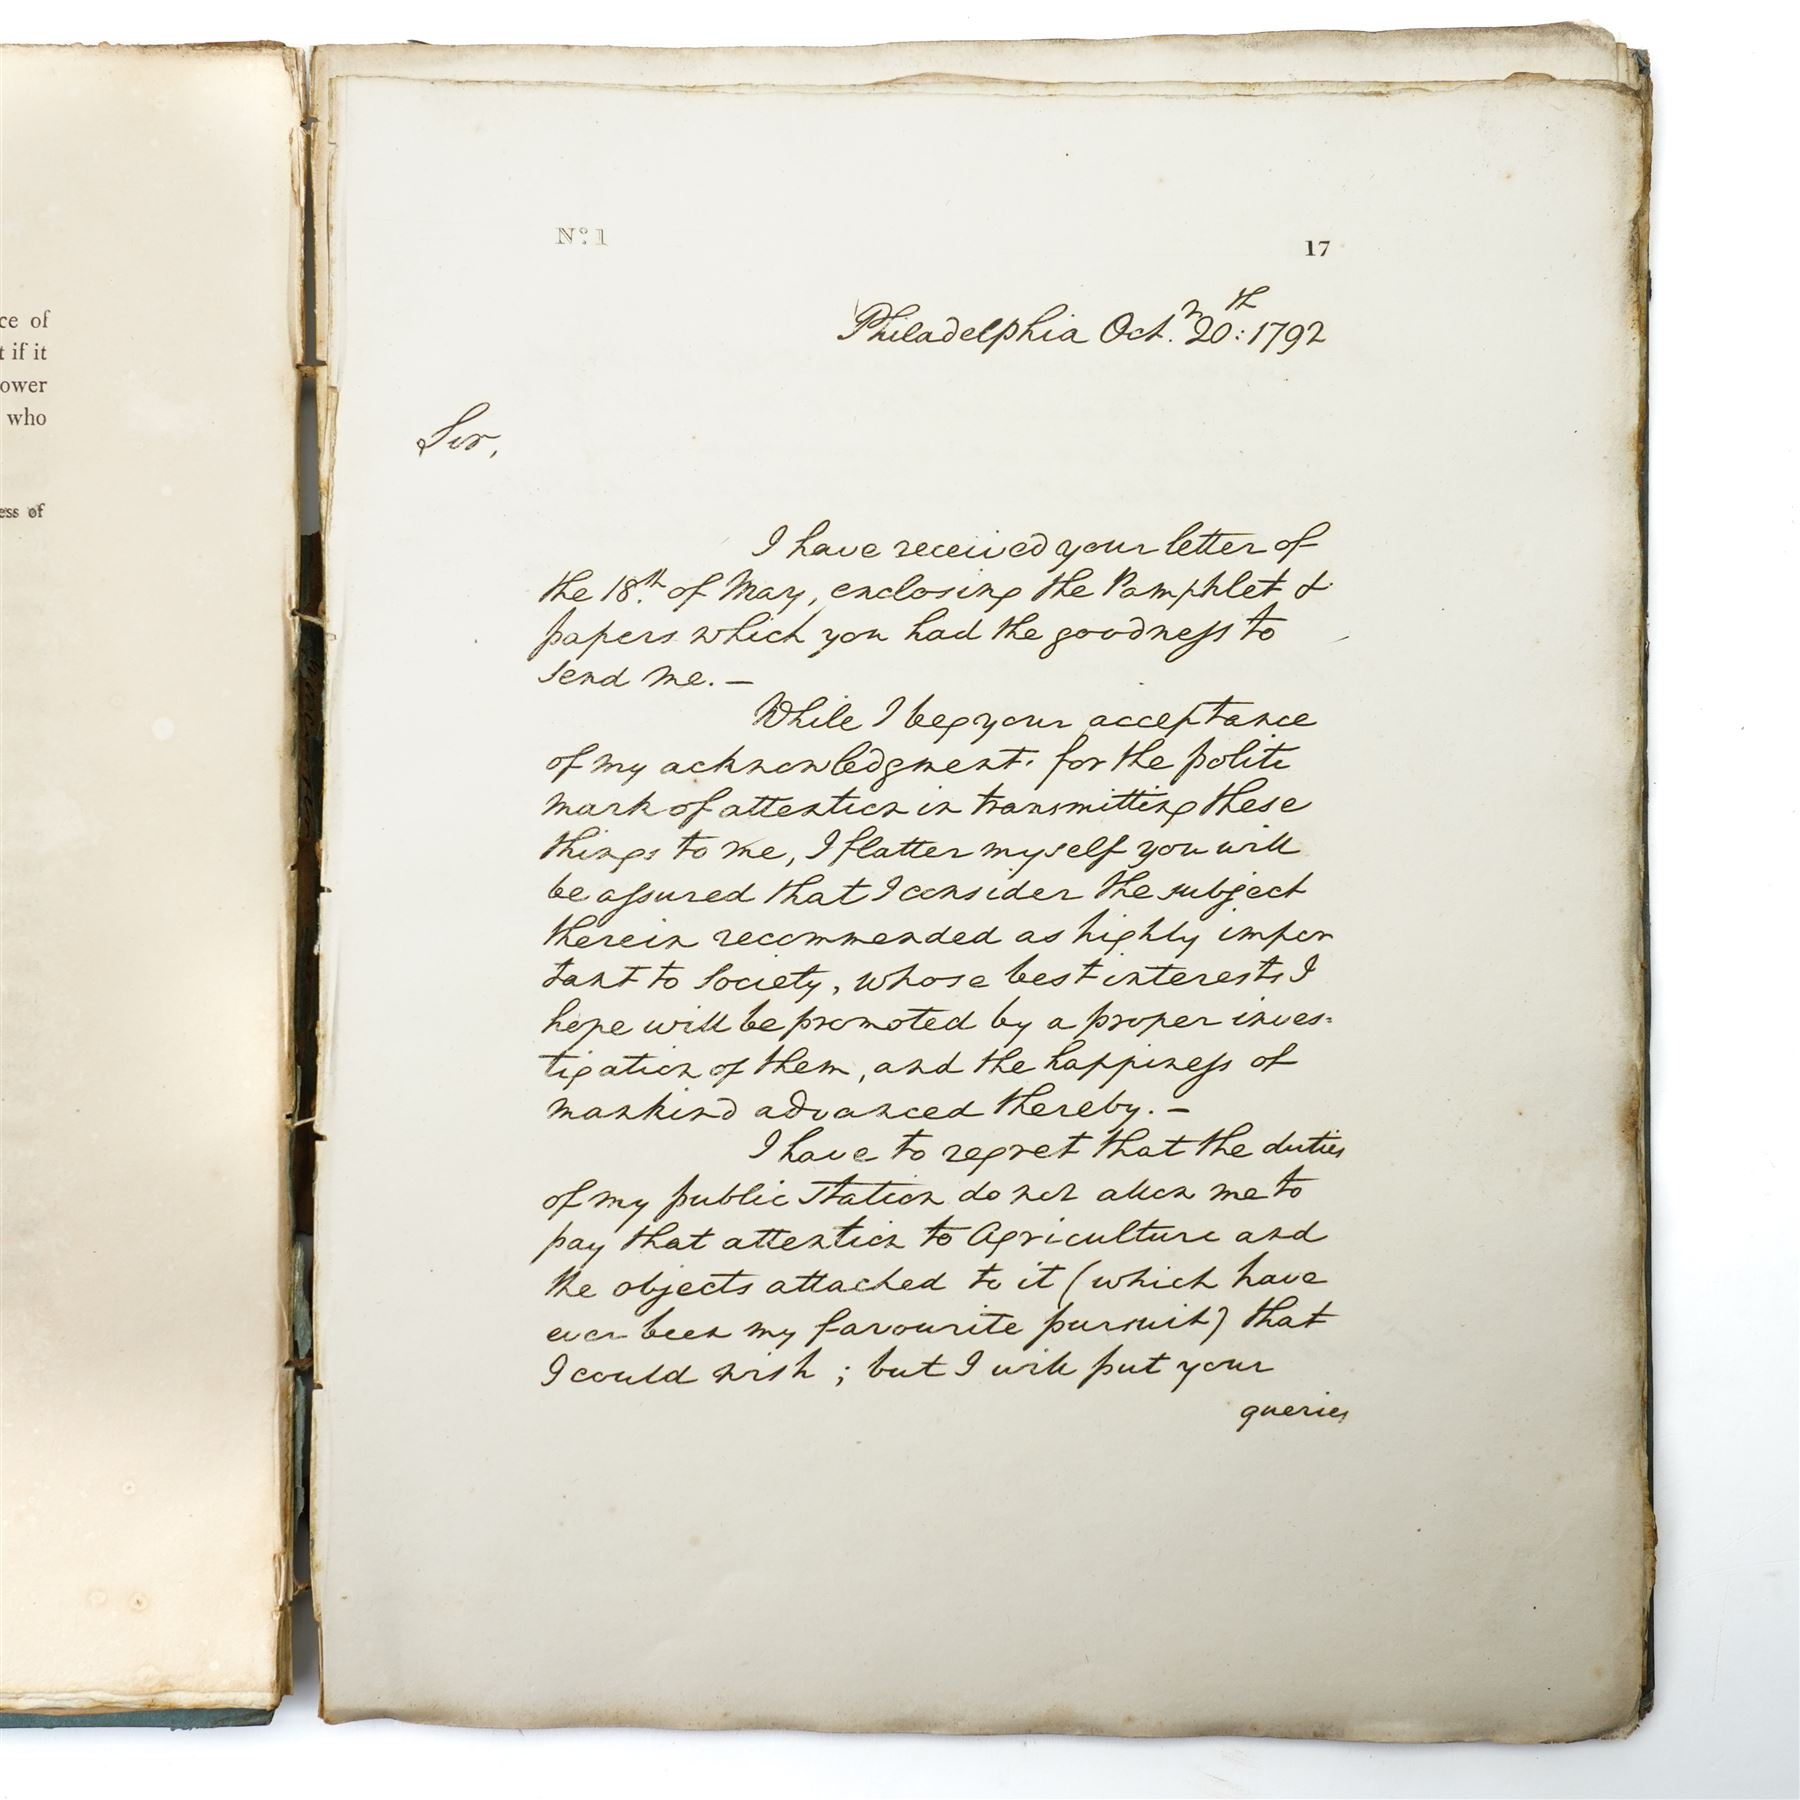 ce of
t if it
ower
who
ess of
Nº. 1
17
Philadelphia Octr. 20th: 1792
Sir,
I have received your letter of
the 18th. of May, enclosing the Pamphlet &
papers which you had the goodness to
send me. —
While I beg your acceptance
of my acknowledgment. for the polite
mark of attention in transmitting these
things to me, I flatter myself you will
be assured that I consider the subject
therein recommended as highly impor
tant to Society, whose best interests I
hope will be promoted by a proper inves=
tigation of them, and the happiness of
mankind advanced thereby. —
I have to regret that the duties
of my public Station do not allow me to
pay that attention to Agriculture and
the objects attached to it (which have
ever been my favourite pursuit) that
I could wish ; but I will put your
queries